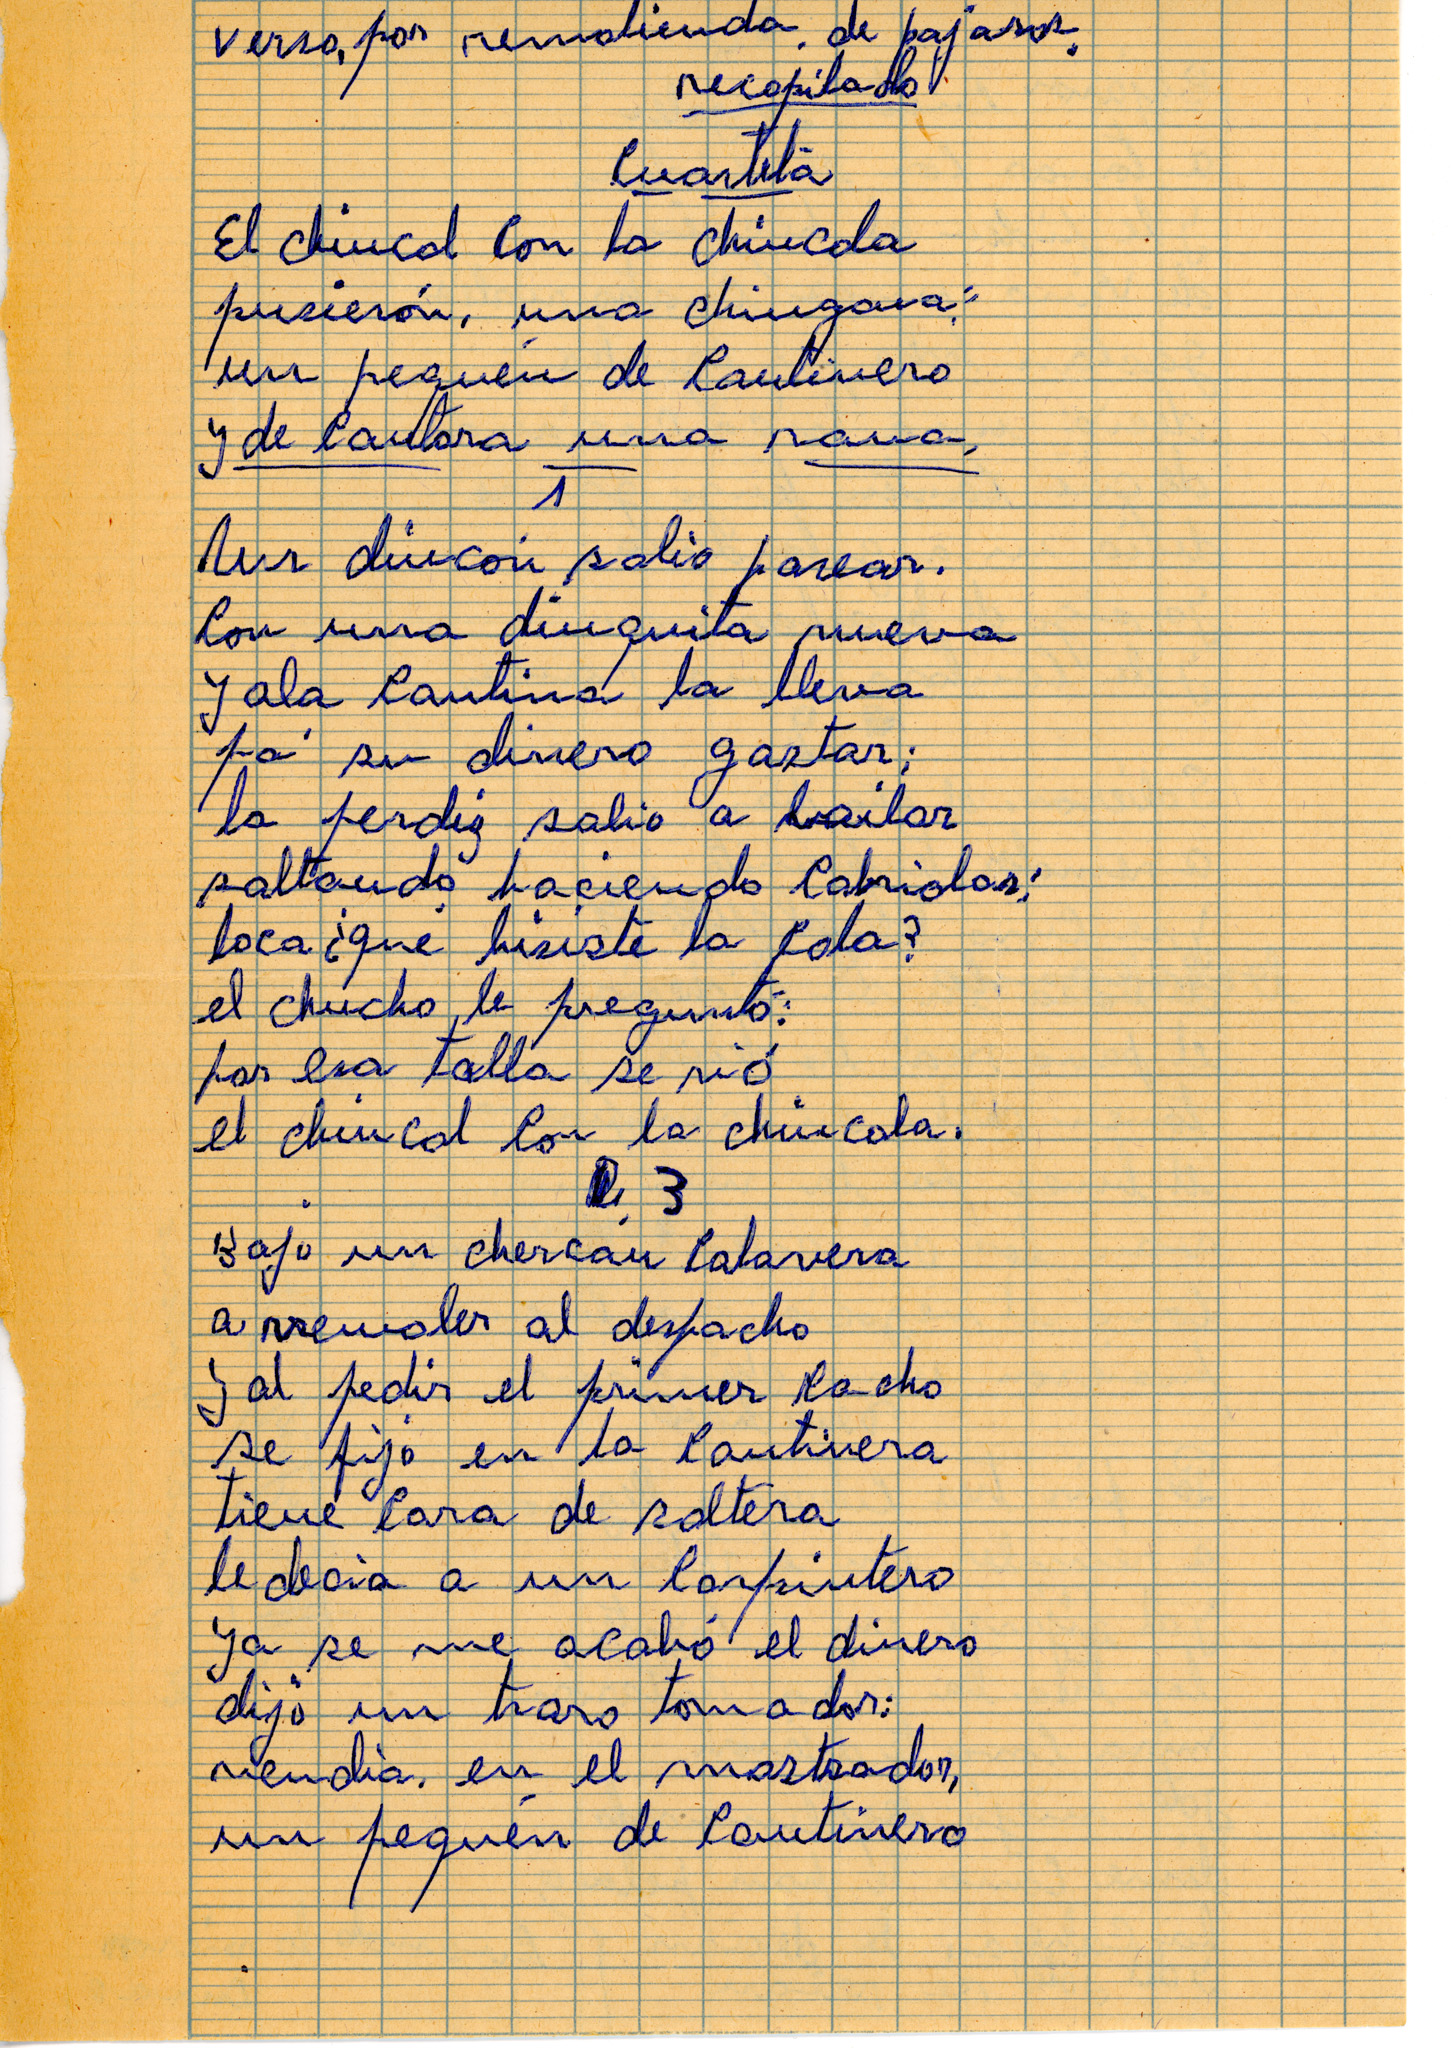 verso, por remolienda. de pajaros.
recopilado
Cuarteta
El chincol Con la chincola
pusierón, una chingana;
un pequén de Cantinero
y de Cantora una rana,
1
Un diucón salio pasear.
Con una diuquita nueva
y ala Cantina la lleva
pa' su dinero gastar;
la perdiz salio a bailar
saltando haciendo Cabriolas;
loca ¿que hisiste la Cola?
el chucho le preguntó:
por esa talla se rió
el chincol Con la chincola.
3
Bajo un chercán Calavera
a rremoler al despacho
y al pedir el primer Cacho
se fijó en la Cantinera
tiene Cara de soltera
le decia a un Carpintero
ya se me acabó el dinero
dijo un traro tomador:
vendia. en el mostrador,
un pequén de Cantinero